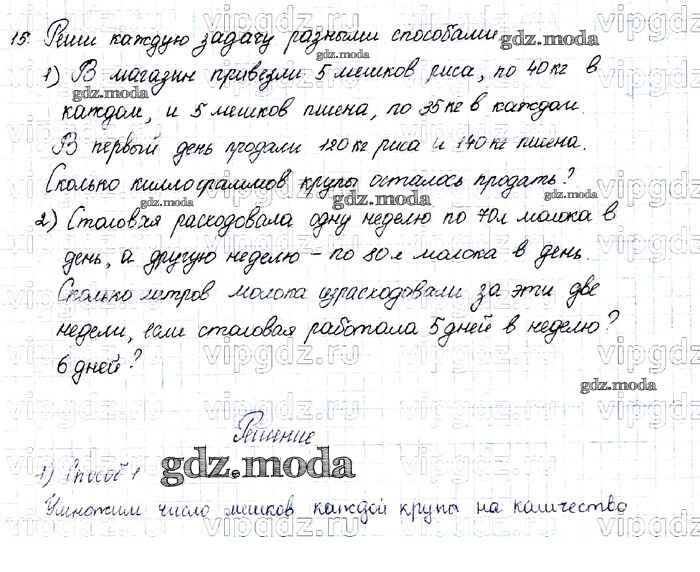 15. Реши каждую задачу разными способами
1) В магазин привезли 5 мешков риса, по 40 кг в
каждом, и 5 мешков пшена, по 35 кг в каждом.
В первый день продали 120 кг риса и 140 кг пшена.
Сколько киллограммов крупы осталось продать?
2) Столовая расходовала одну неделю по 70 л молока в
день, а другую неделю – по 80 л молока в день.
Сколько литров молока израсходовали за эти две
недели, если столовая работала 5 дней в неделю?
6 дней?
Решение
1) Способ 1
Умножим число мешков каждой крупы на количество
gdz.moda
gdz.moda
gdz.moda
gdz.moda
gdz.moda
gdz.moda
gdz.moda
vipgdz.ru
vipgdz.ru
vipgdz.ru
vipgdz.ru
vipgdz.ru
vipgdz.ru